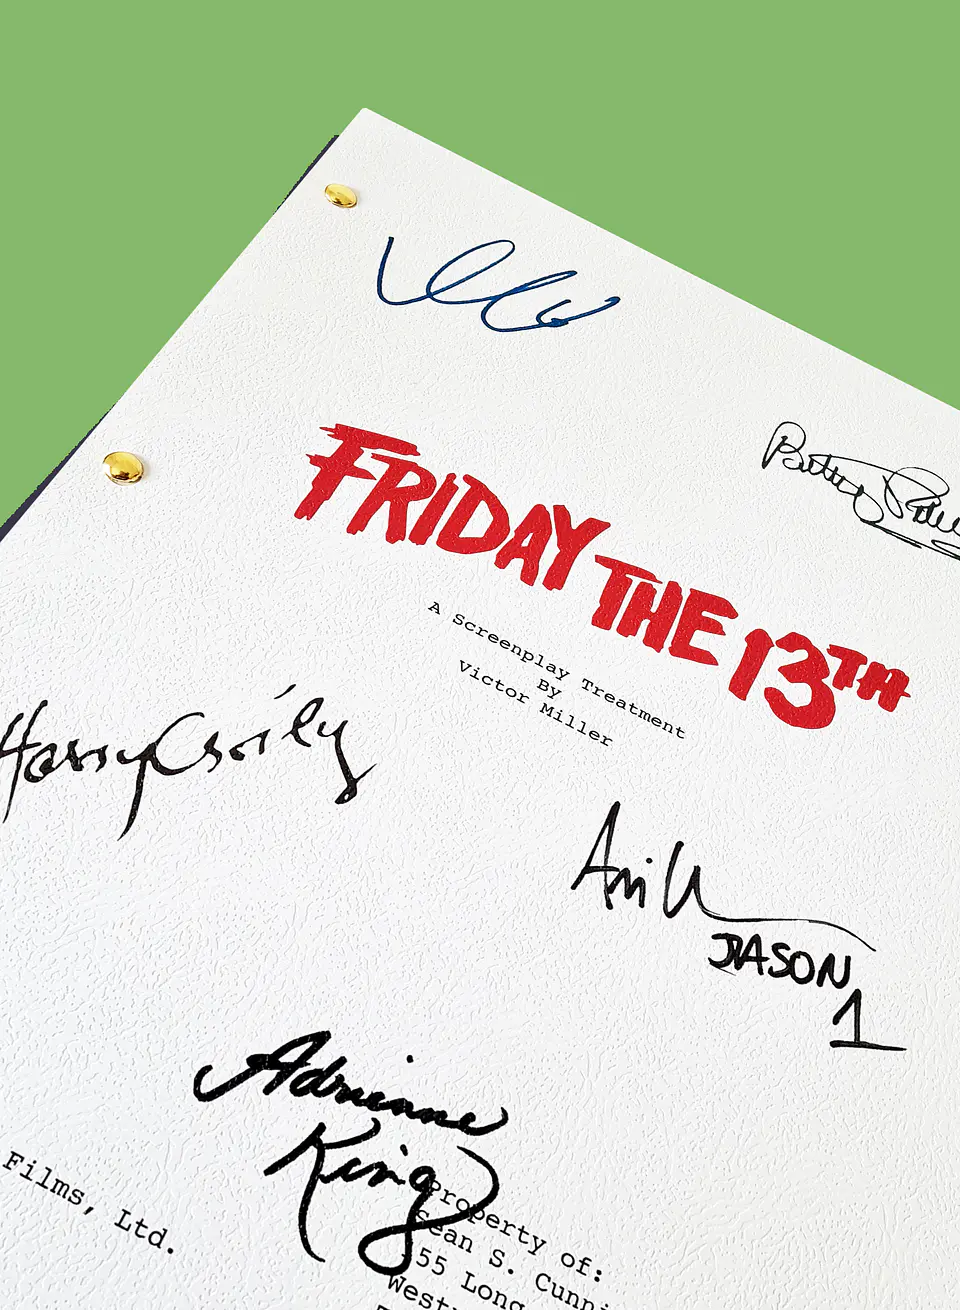 Betsy
FRIDAY THE 13TH
A Screenplay Treatment
By
Victor Miller
Harry Crosby
Ari
JASON
1
Adrienne
King
Films, Ltd.
Property of:
Sean S. Cunni
55 Long
Westp